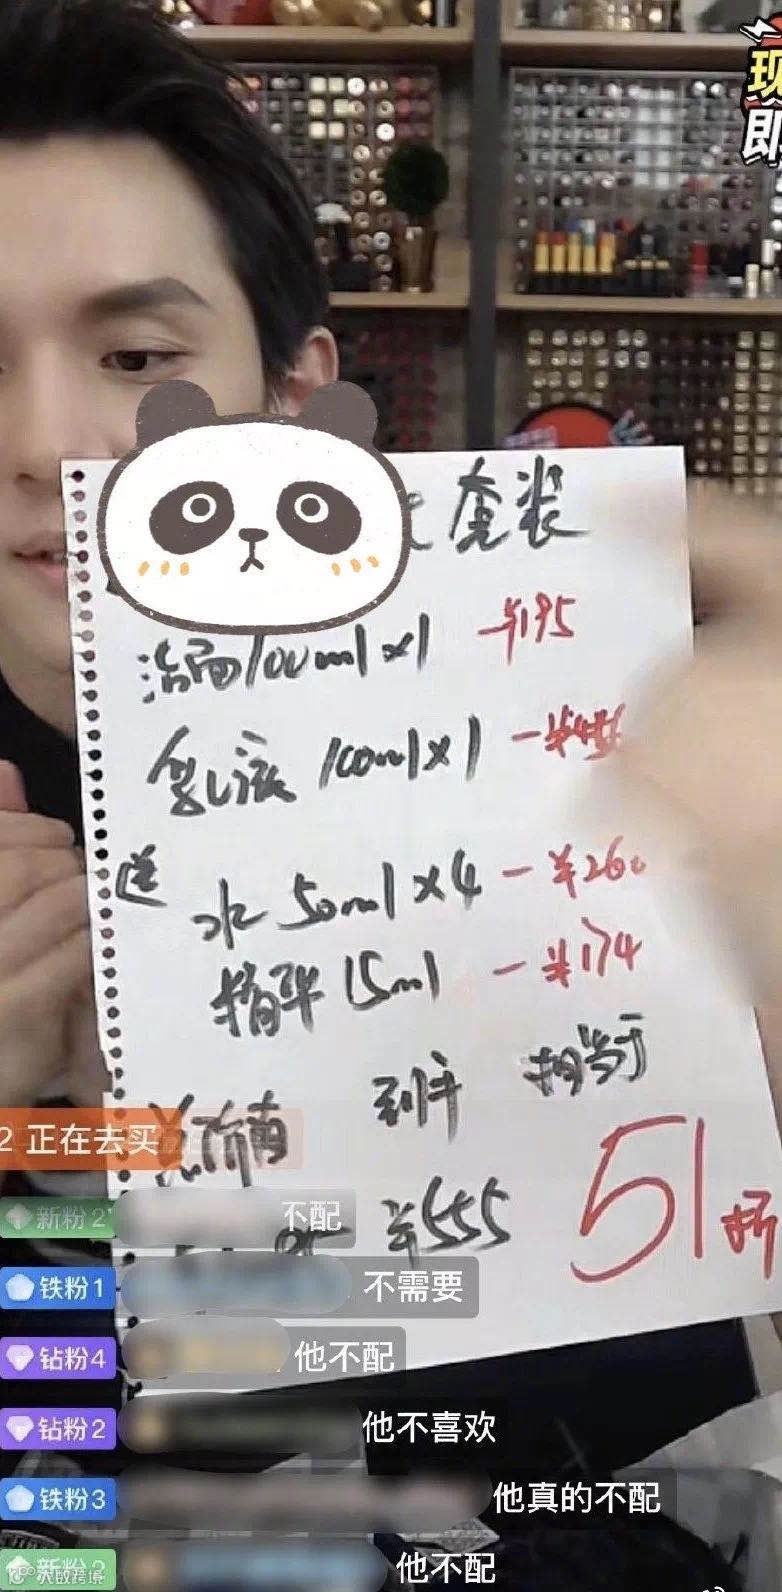 现
即
套装
洁面100ml×1 -¥195
乳液100ml×1 -
送
水50ml×4 -¥260
精华15ml -¥174
总价值 到手 相当于
¥555 51折
2 正在去买
新粉2 不配
铁粉1 不需要
钻粉4 他不配
钻粉2 他不喜欢
铁粉3 他真的不配
新粉2 他不配
大数跨境